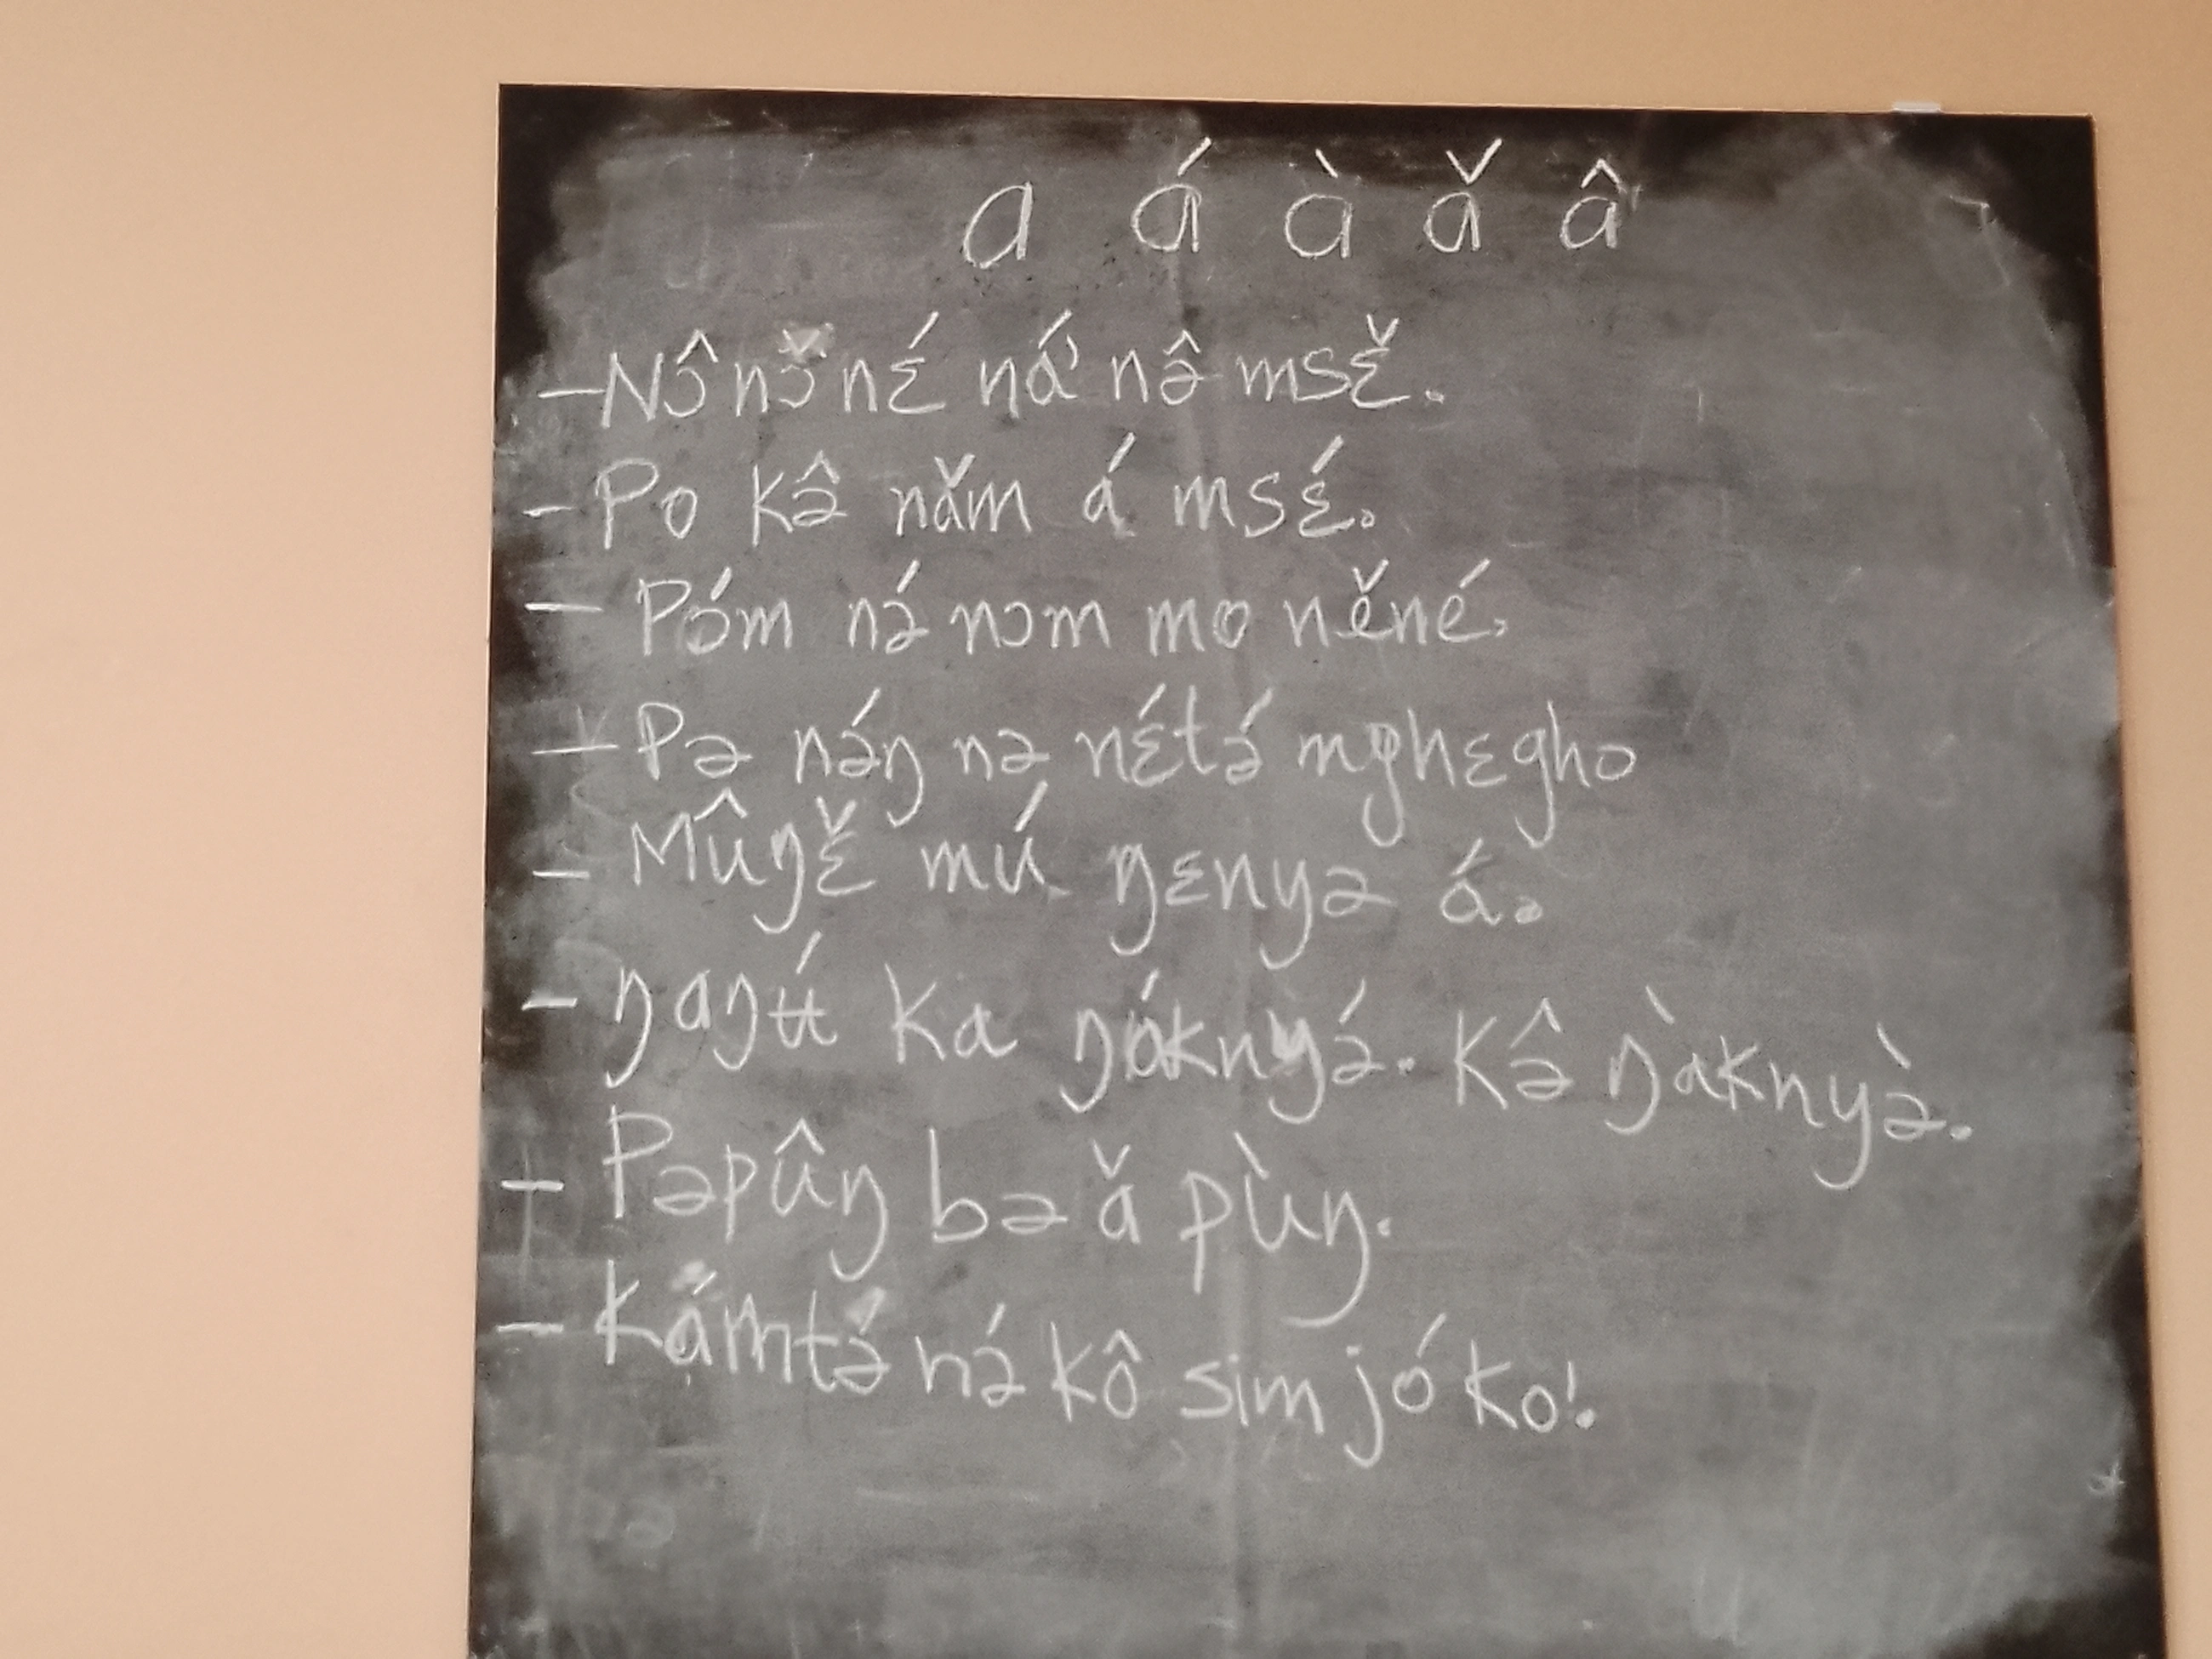 a á à ǎ â
– Nɔ̂ nɔ̌ nɛ́ ŋá' nə̂ msɛ̌.
- Po kə̂ nǎm á msɛ́.
– Póm nə́ nɔm mo něné,
– Pə nə́ŋ nə nɛ́tə́ mghɛgho
– Mûŋɛ̌ mú ŋɛnyə á.
– ŋaŋʉ́ ka ŋáknyə́. Kə̂ ŋàknyə̀.
– Pəpûŋ bə ǎ pùŋ.
– Kámtə́ nə́ kô sim jó ko!